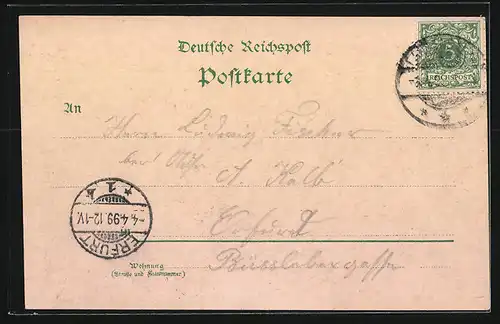 Deutsche Reichspost
Postkarte
5
REICHSPOST
An
Herrn Ludwig Fischer
bei
A. Kalb
Erfurt
Büsslebergasse
ERFURT
4.4.99.12-1V.
* 1 k
Wohnung
(Straße und Hausnummer)